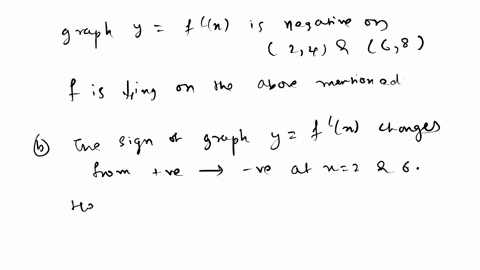 graph y = f'(x) is negative on
(2,4) & (6,8)
f is ↓ing on the above mentioned
(b) The sign of graph y = f'(x) changes
from +ve → -ve at x=2 & 6.
Ho